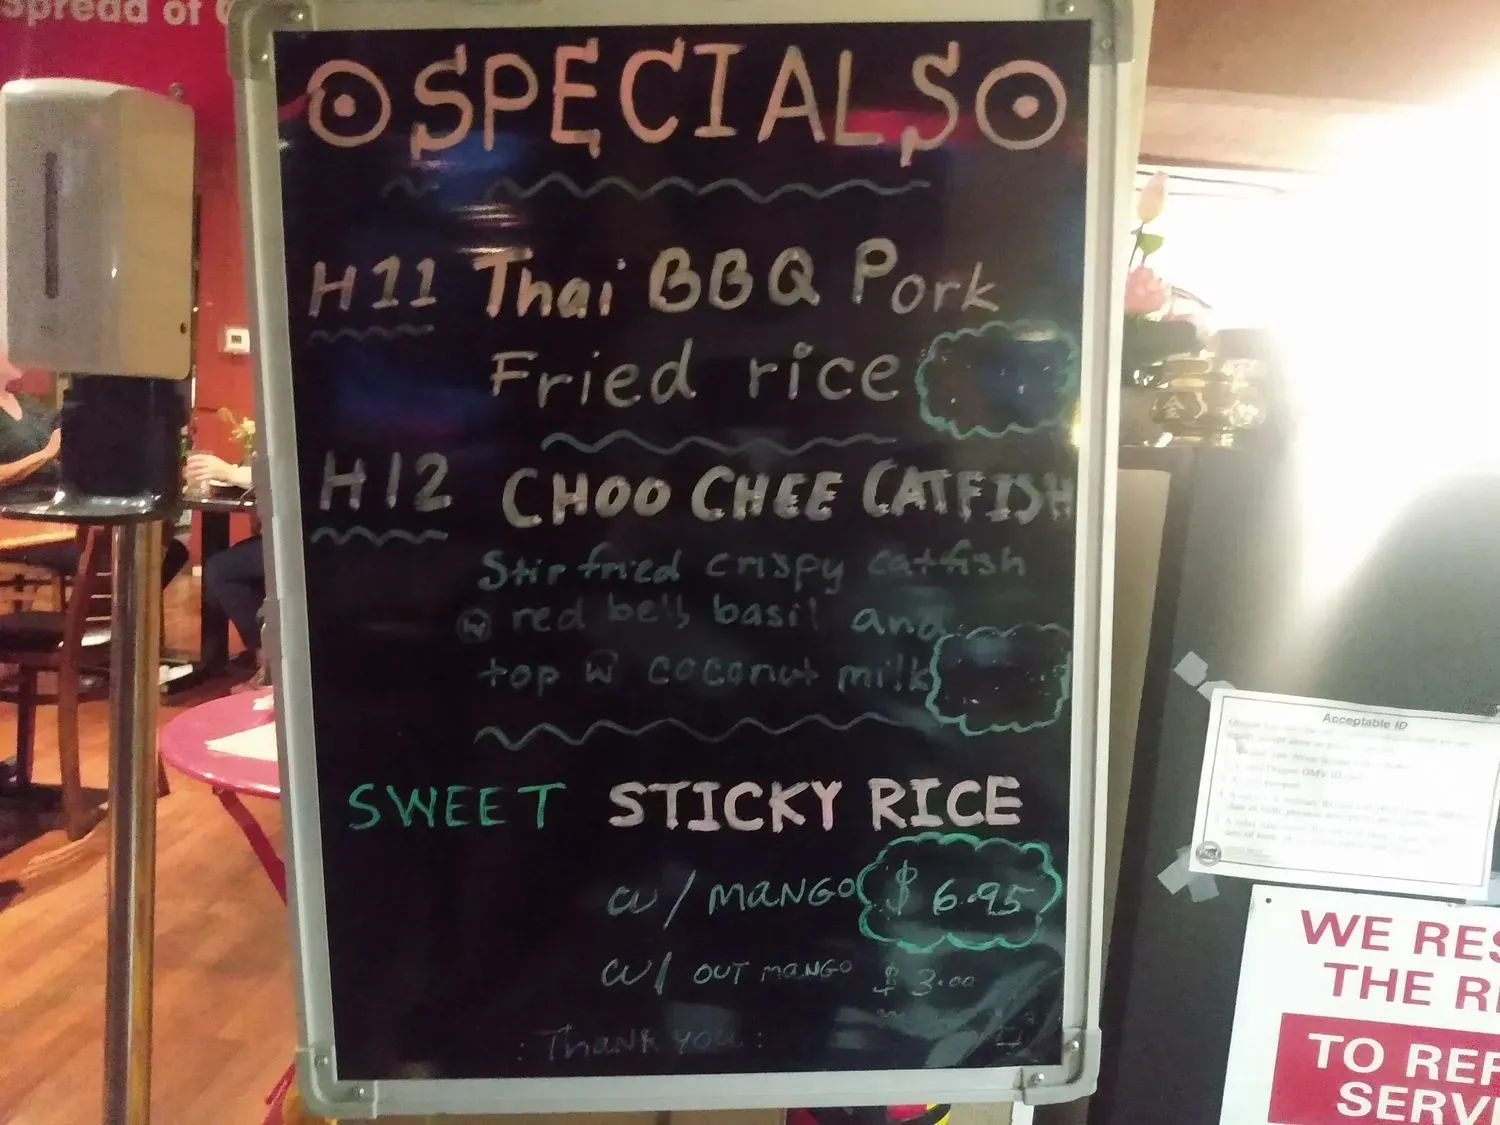 Spread of
SPECIALS
H11 Thai BBQ Pork
Fried rice
H12 CHOO CHEE CATFISH
Stir fried crispy catfish
w red bells basil and
top w coconut milk
SWEET STICKY RICE
w/ MANGO $ 6.95
w/ OUT MANGO $ 3.00
: Thank you :
Acceptable ID
WE RES
THE R
TO REF
SERV